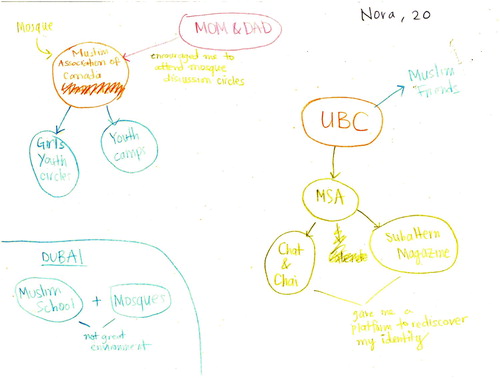 Nora, 20
Mosque
MOM & DAD
Muslim
Association of
Canada
encouraged me to
attend mosque
discussion circles
Girls
Youth
circles
Youth
camps
Muslim
Friends
UBC
MSA
Chat
&
Chai
Subaltern
Magazine
gave me a
platform to rediscover
my identity
DUBAI
Muslim
School
+
Mosques
not great
environment